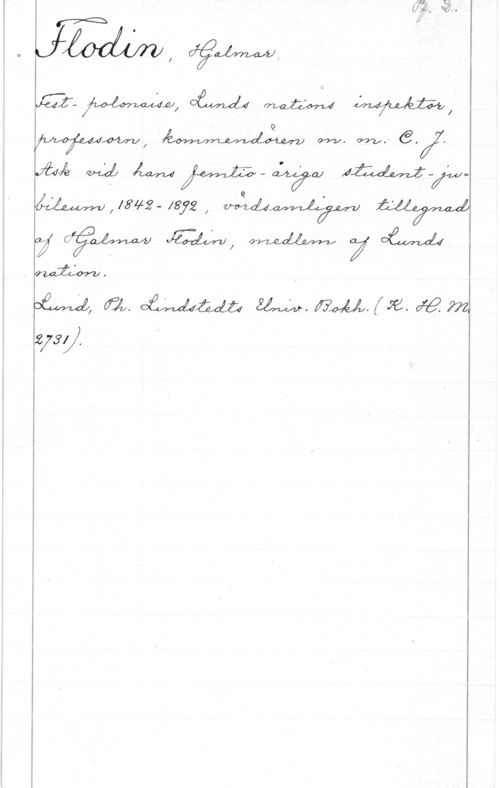 Pf. 2.
Flodin, Hjalmar
Fest-polonaise, Lunds nations inspektor,
professorn, kommendören m. m. C. J.
Ask vid hans femtio-åriga student-ju-
bileum, 1842-1892, vördsamligen tillegnad
af Hjalmar Flodin, medlem af Lunds
nation.
Lund, Ph. Lindstedts Univ. Bokh. (K. H. M.
2731).